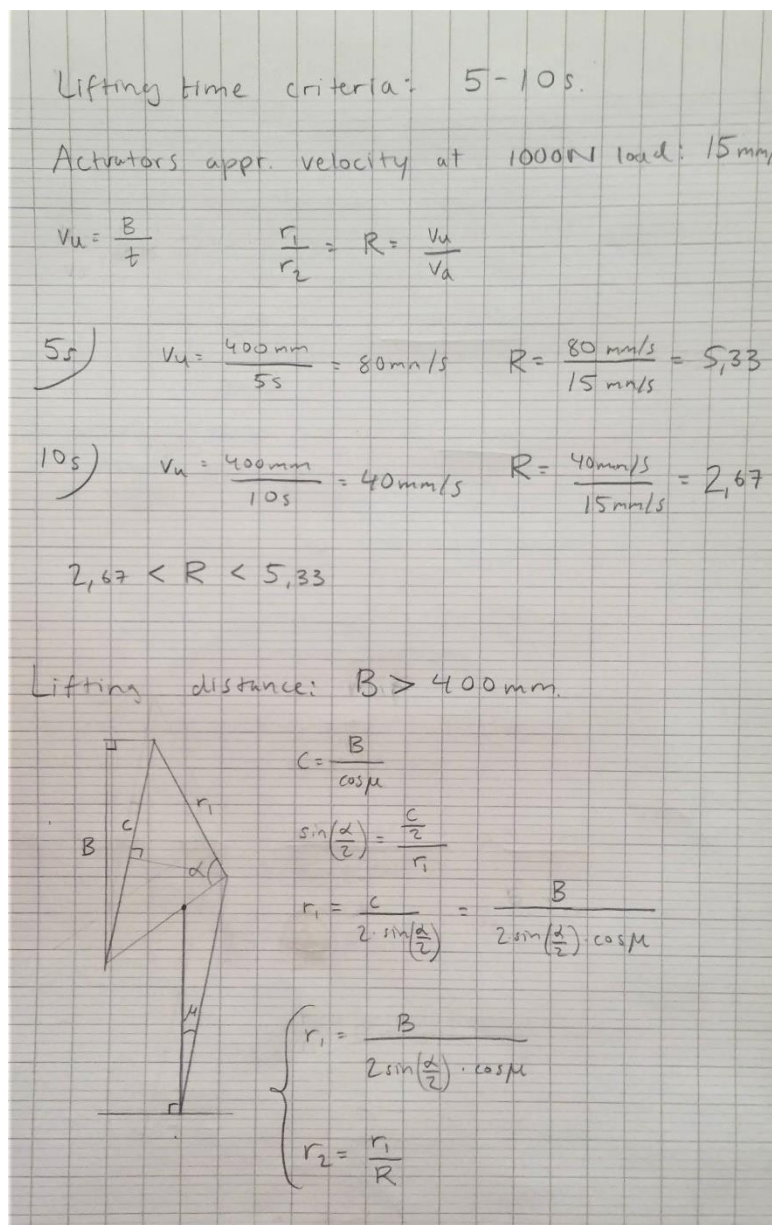 Lifting time criteria: 5-10s.
Actuators appr. velocity at 1000N load: 15mm/
Vu = B/t r1/r2 = R = Vu/Va
5s) Vu = 400mm/5s = 80mm/s R = 80 mm/s / 15 mm/s = 5,33
10s) Vu = 400mm/10s = 40mm/s R = 40mm/s / 15mm/s = 2,67
2,67 < R < 5,33
Lifting distance: B > 400mm.
C = B/cosμ
sin(α/2) = (c/2)/r1
r1 = c/(2·sin(α/2)) = B/(2sin(α/2)·cosμ)
r1 = B/(2sin(α/2)·cosμ)
r2 = r1/R
r1
C
B
α
μ